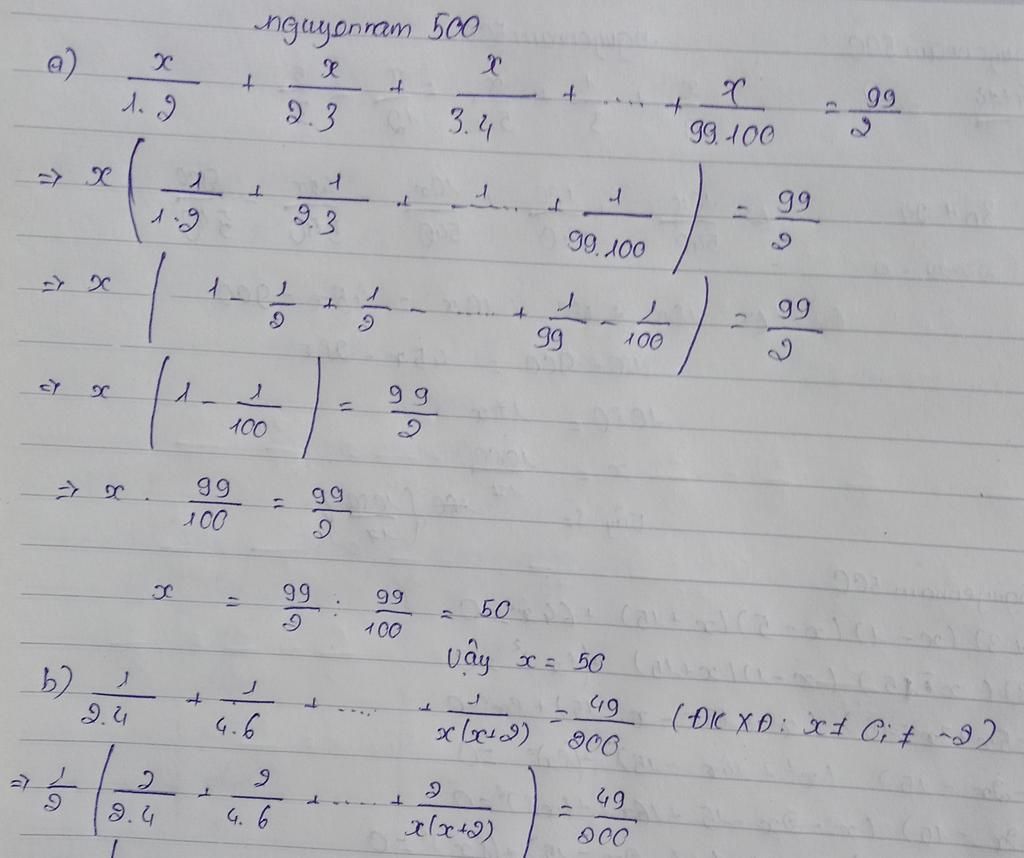 nguyonnam 500
a) x/1.2 + x/2.3 + x/3.4 + .... + x/99.100 = 99/2
=> x ( 1/1.2 + 1/2.3 + ..... + 1/99.100 ) = 99/2
=> x ( 1 - 1/2 + 1/2 - ..... + 1/99 - 1/100 ) = 99/2
=> x ( 1 - 1/100 ) = 99/2
=> x . 99/100 = 99/2
x = 99/2 : 99/100 = 50
Vậy x = 50
b) 1/2.4 + 1/4.6 + ..... + 1/x(x+2) = 49/200 (ĐKXĐ: x ≠ 0; ≠ -2)
=> 1/2 ( 2/2.4 + 2/4.6 + ..... + 2/x(x+2) ) = 49/200